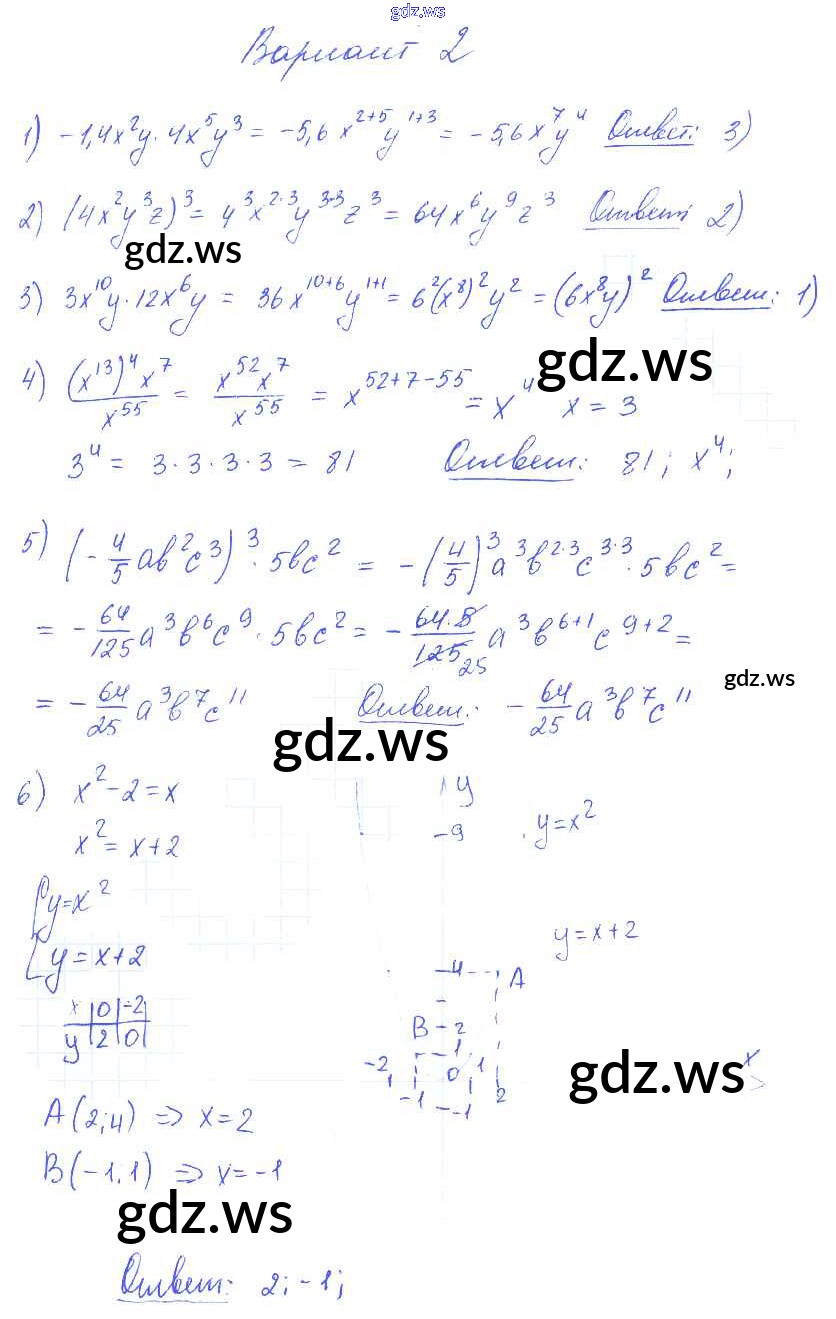 gdz.ws
Вариант 2
1) -1,4x²y · 4x⁵y³ = -5,6x²⁺⁵y¹⁺³ = -5,6x⁷y⁴ Ответ: 3)
2) (4x²y³z)³ = 4³x²·³y³·³z³ = 64x⁶y⁹z³ Ответ: 2)
gdz.ws
3) 3x¹⁰y · 12x⁶y = 36x¹⁰⁺⁶y¹⁺¹ = 6²(x⁸)²y² = (6x⁸y)² Ответ: 1)
gdz.ws
4) (x¹³)⁴x⁷/x⁵⁵ = x⁵²x⁷/x⁵⁵ = x⁵²⁺⁷⁻⁵⁵ = x⁴ x = 3
3⁴ = 3·3·3·3 = 81 Ответ: 81; x⁴;
5) (-4/5ab²c³)³ · 5bc² = -(4/5)³a³b²·³c³·³ · 5bc² =
= -64/125a³b⁶c⁹ · 5bc² = -64·5/125 25 a³b⁶⁺¹c⁹⁺² =
gdz.ws
= -64/25a³b⁷c¹¹ Ответ: -64/25a³b⁷c¹¹
gdz.ws
6) x² - 2 = x
x² = x + 2
y = x²
y = x + 2
x | 0 | -2
y | 2 | 0
y
-9
y = x²
y = x + 2
4 A
B 2
1
-2 0 1
-1 -1 2
x
gdz.ws
A(2;4) => x = 2
B(-1;1) => x = -1
gdz.ws
Ответ: 2; -1;